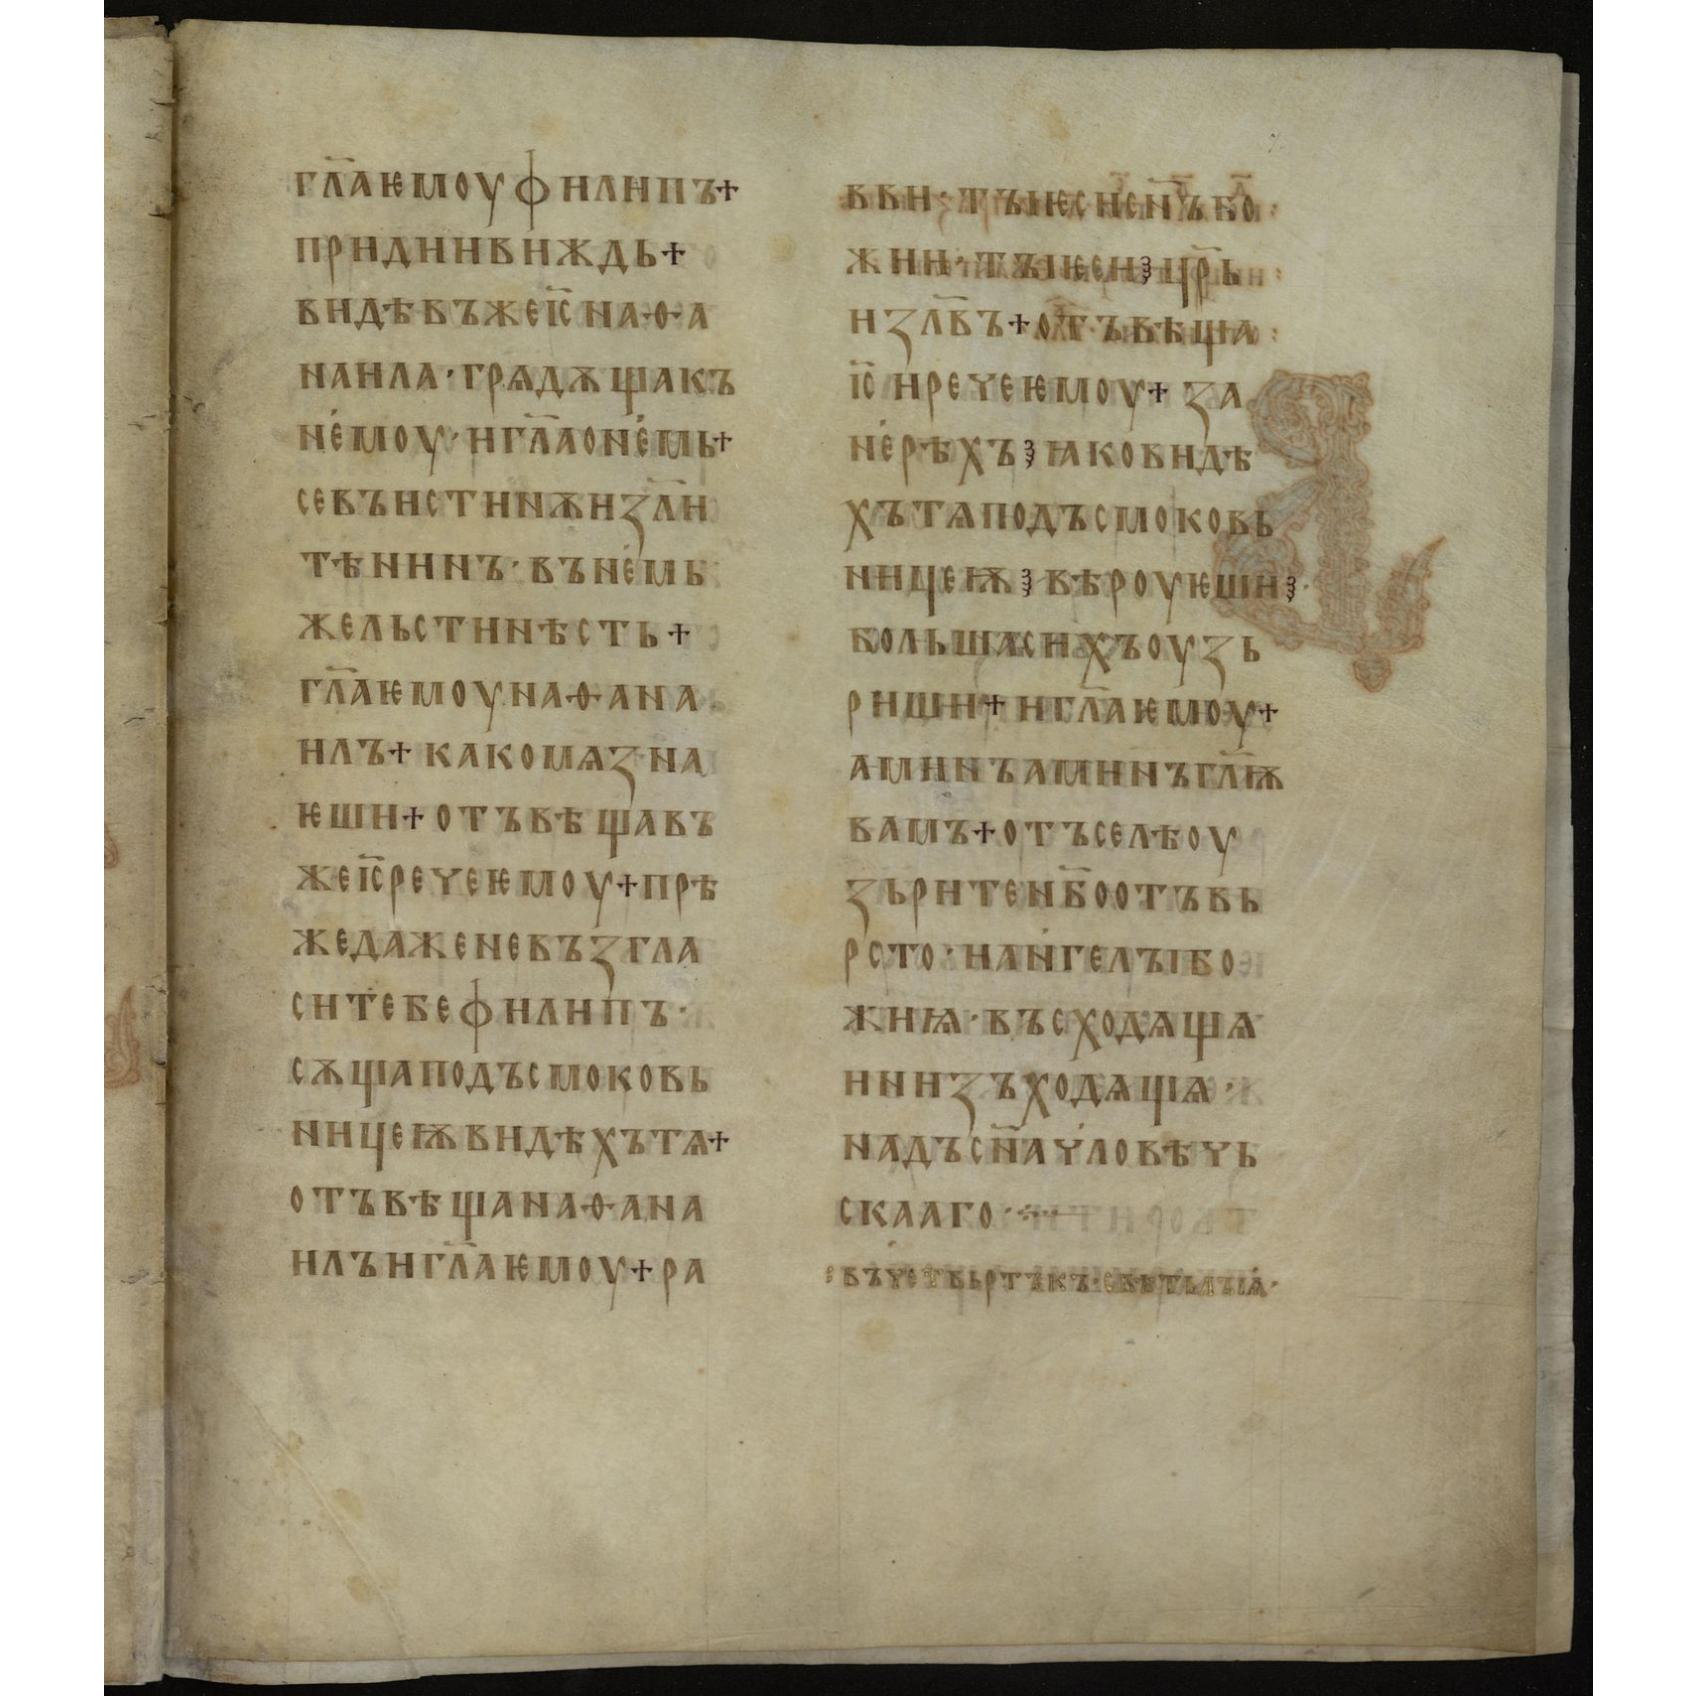 гл҃аѥмоуфилипъ+
придиивиждь+
видѣвъжеі҃сна·ѳ·а
наила·грѧдѫщакъ
не́моу·игл҃аоне́мь+
севъистинѫиꙁл҃и
тѣнинъ·въне́мь
жельстинѣсть+
гл҃аѥмоунаѳана
илъ+какомѧꙁна
ѥши+отъвѣщавъ
жеі҃сречеѥмоу+прѣ
жедаженевъꙁгла
ситебефилипъ·
сѫщаподъсмоковь
ницеѭвидѣхътѧ+
отъвѣщанаѳана
илъигл҃аѥмоу+ра
вви·тꙑѥсисн҃ъбо
жии·тꙑѥсиꙁцр҃ь
иꙁл҃въ+отъвѣща
і҃сиречеѥмоу+ꙁа
не́рѣхъꙁꙗковидѣ
хътѧподъсмоковь
ницеѭꙁвѣроуѥшиꙁ·
большѧсихъоуꙁь
риши+игл҃аѥмоу+
аминъаминъгл҃ѭ
вамъ+отъселѣоу
ꙁьритенб҃оотъвь
рсто·иан́гелꙑбо
жиѩ·въсходѧщѧ
ниниꙁъходѧщѧ·
надъсн҃ачловѣчь
скааго·
въчетвьртъкъ·свѣтьлꙑѩ·